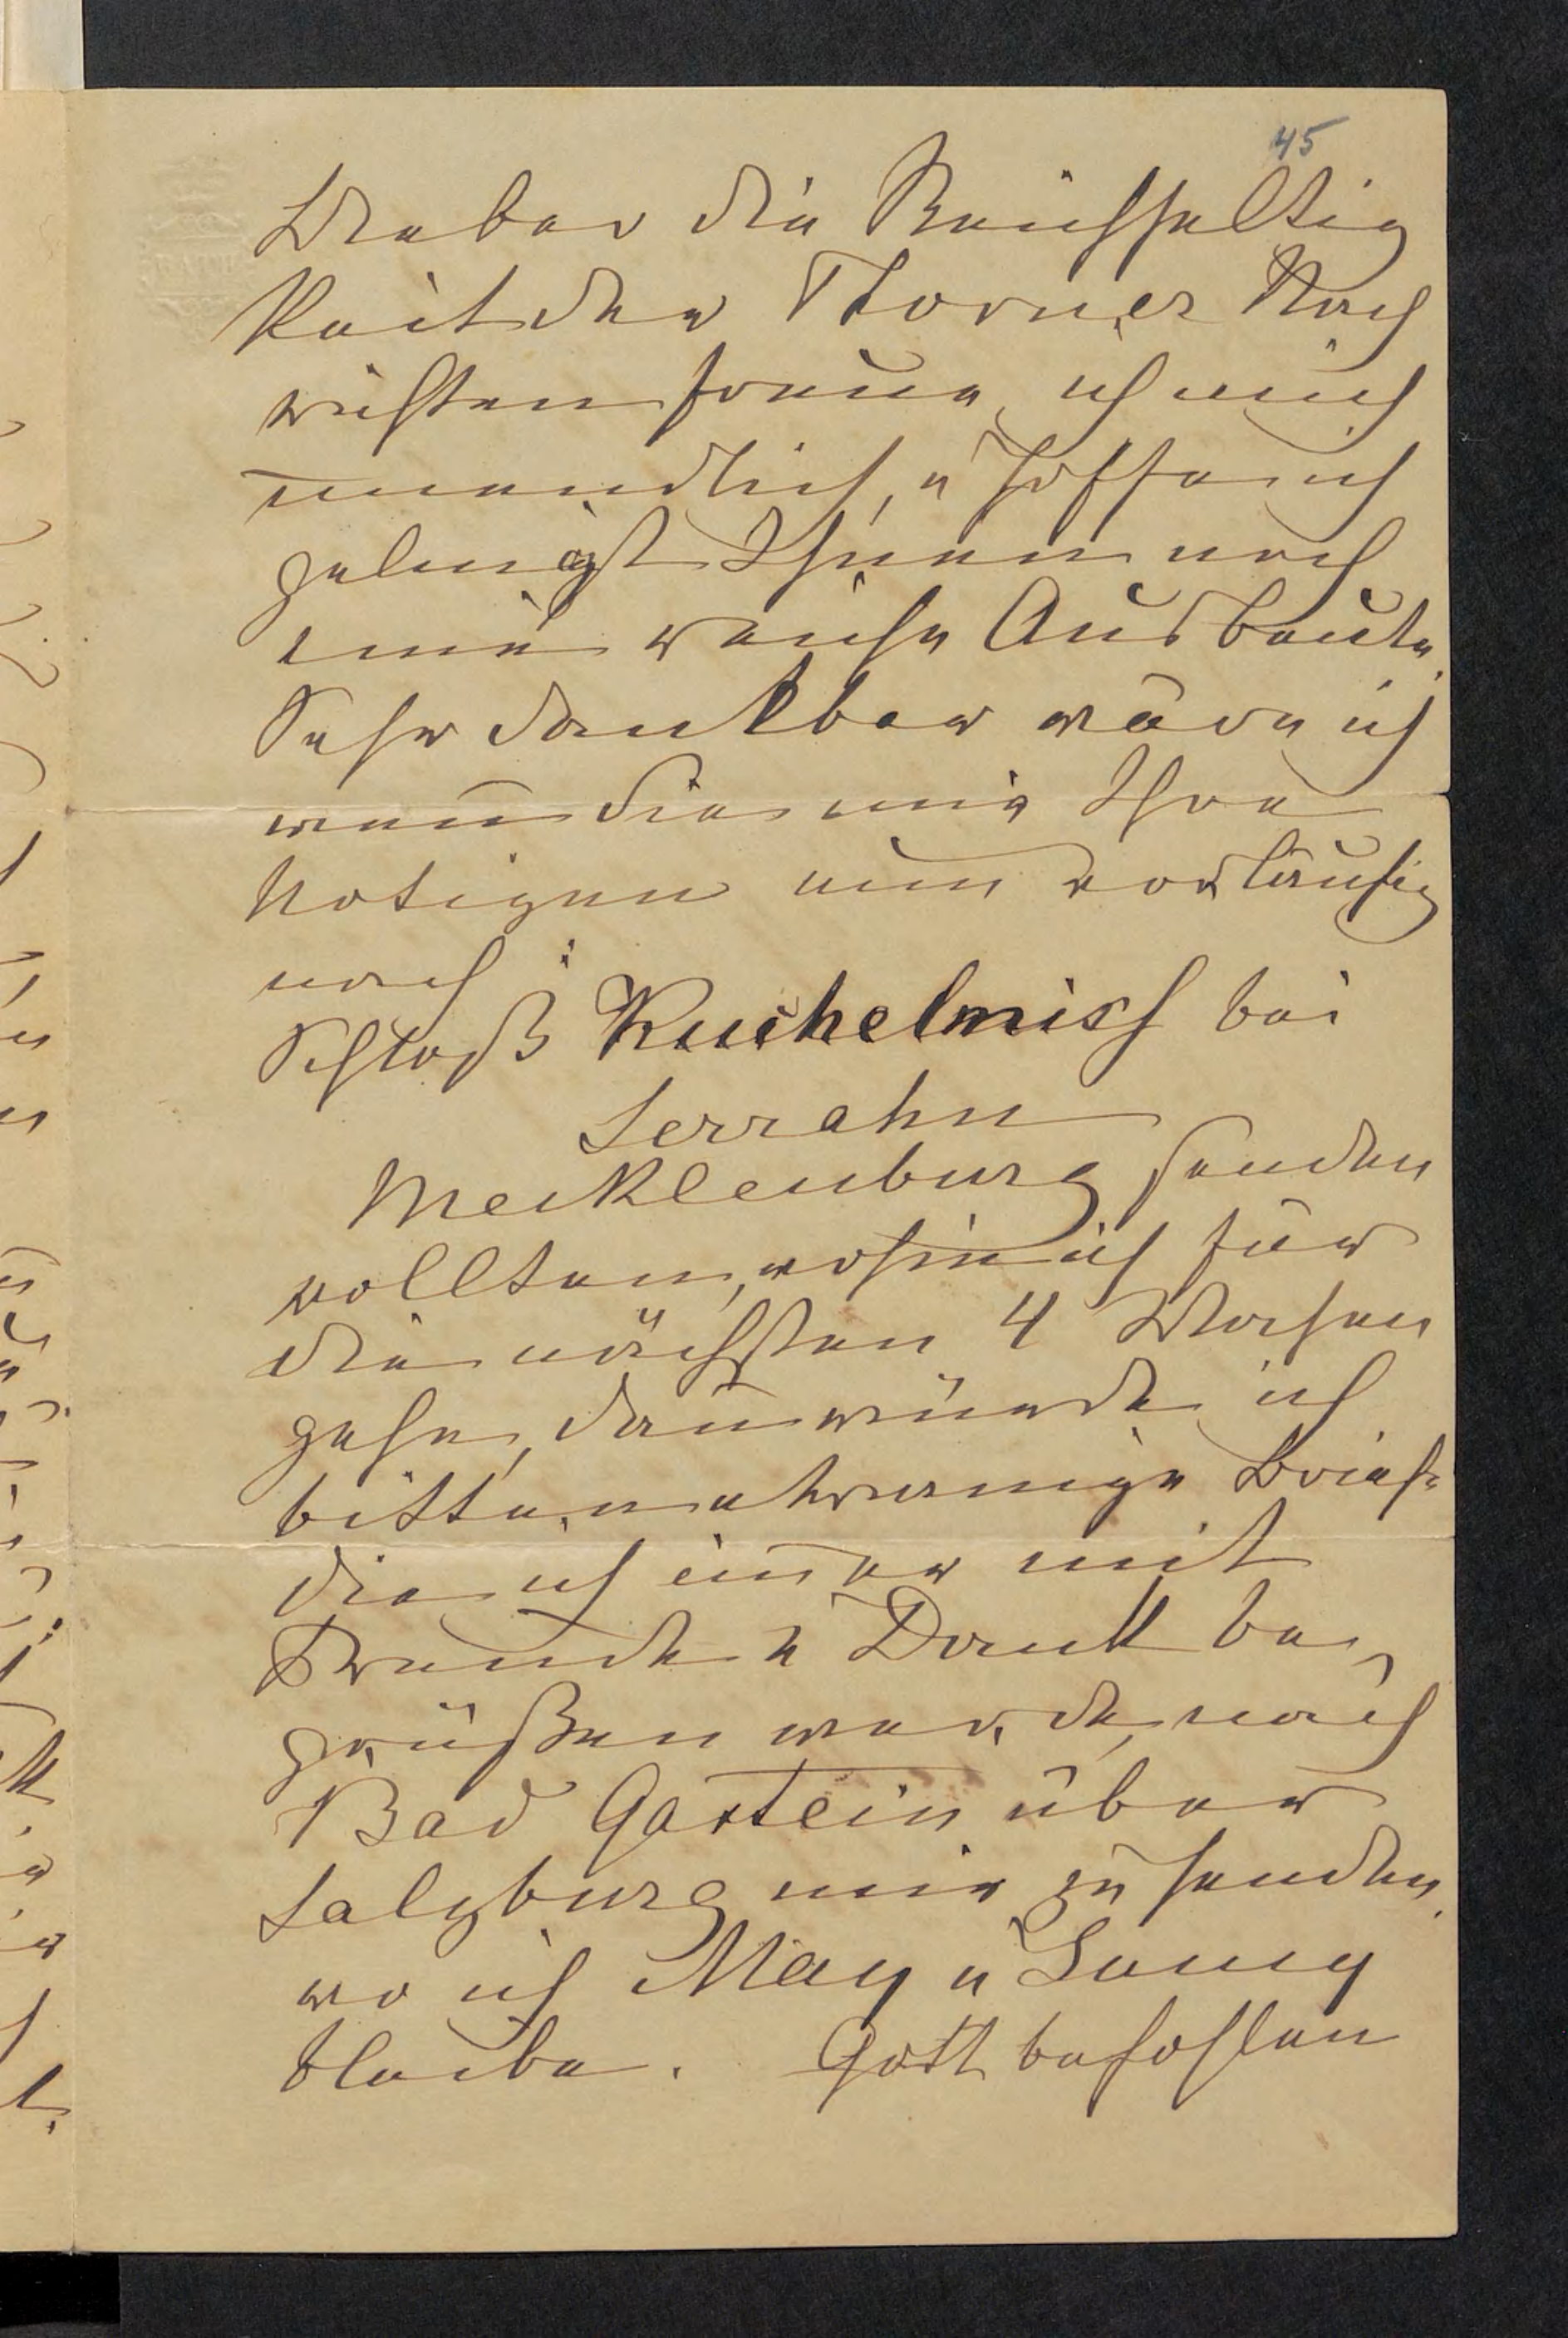 45
Ueber die Reichhaltig
keit der Thorner Nach
richten freue ich mich
unendlich, u hoffe ich
gelingt Ihnen noch
eine reiche Ausbeute.
Sehr dankbar wäre ich
wenn Sie mir Ihre
Notizen nun vorläufig
nach:
Schloß Kuchelmiss bei
Serrahn
Mecklenburg senden
wollten, wohin ich für
die nächsten 4 Wochen
gehe, dann würde ich
bitten etwanige Briefe
die ich immer mit
Freude u Dank be
grüßen werde, nach
Bad Gastein über
Salzburg mir zu senden,
wo ich May u Juny
bleibe. Gott befohlen